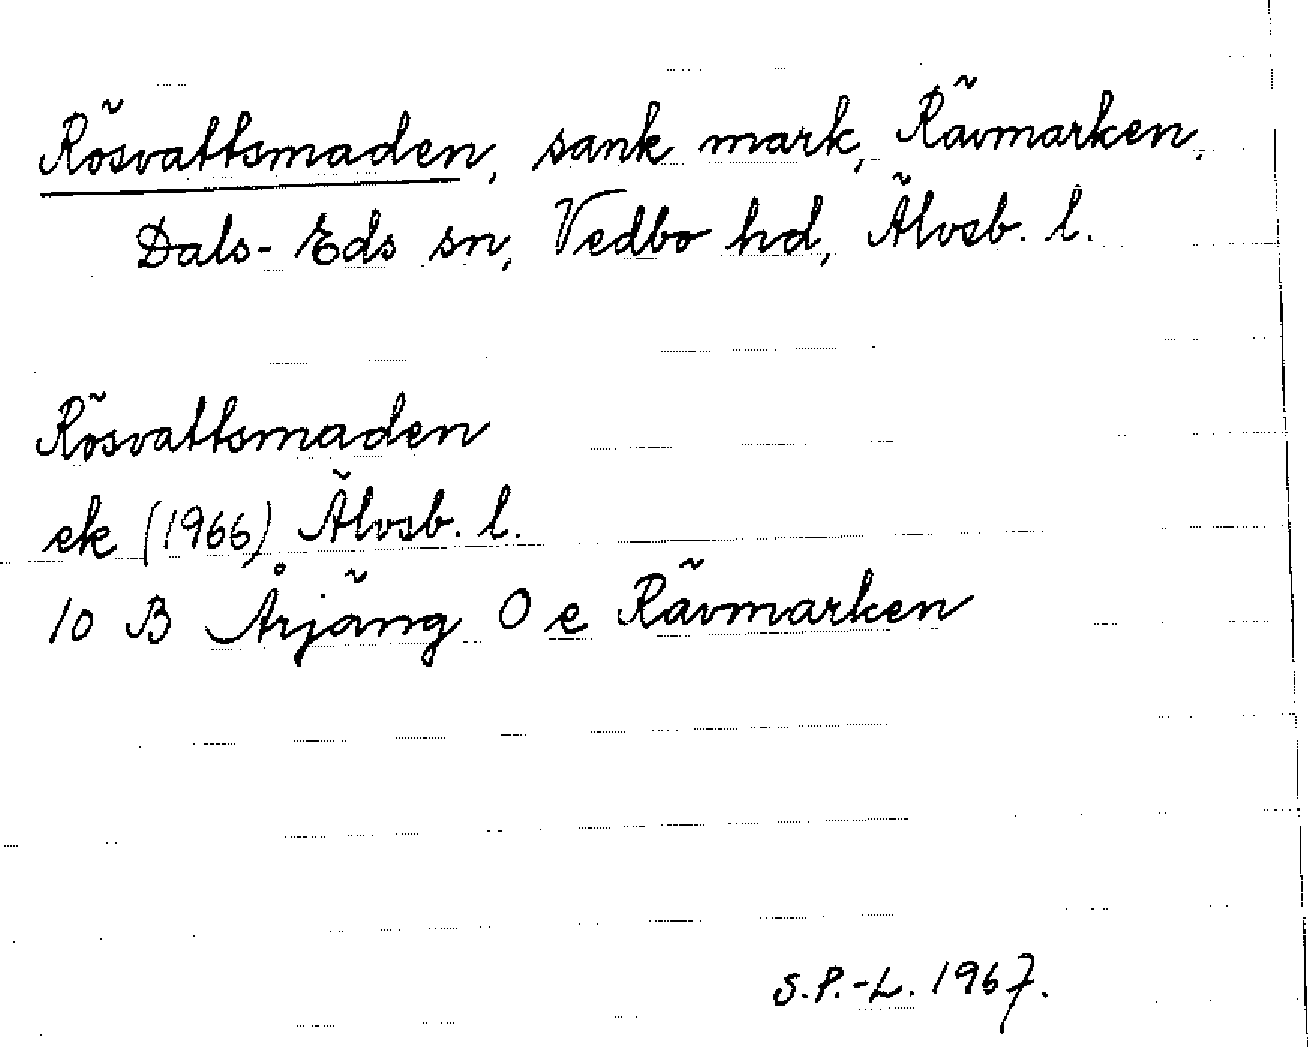 Rösvattsmaden, sank mark, Rävmarken,
Dals-Eds sn, Vedbo hd, Älvsb. l.
Rösvattsmaden
ek (1966) Älvsb. l.
10 B Årjäng 0 e Rävmarken
S.P.-L. 1967.